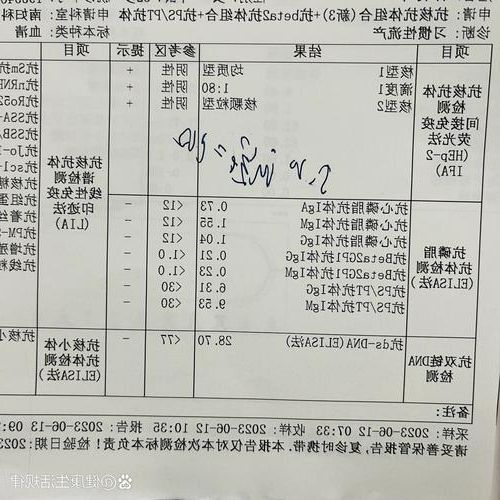 申请: 抗核抗体组合(新3)+抗beta2抗体组合+抗PS/PT抗体 申请科室: 南妇科
诊断: 习惯性流产 标本种类: 血清
项目 结果 参考区 提示 项目
抗核抗体检测 间接免疫荧光法 (HEp-2 IFA)
核型1 均质型 阴性 +
滴度1 1:80 阴性 +
核型2 核颗粒型 阴性 +
抗核抗体谱检测 线性免疫印迹法 (LIA)
抗Sm抗
抗nRNP
抗Ro52
抗SSA-
抗SSB/
抗Jo-1
抗scl-
抗核糖
抗组蛋
抗着丝
抗PM-S
抗增殖
抗线粒
抗磷脂抗体检测 (ELISA法)
抗心磷脂抗体IgA 0.73 <12 -
抗心磷脂抗体IgM 1.55 <12 -
抗心磷脂抗体IgG 1.04 <12 -
抗Beta2GP1抗体IgG 0.21 <1.0 -
抗Beta2GP1抗体IgM 0.23 <1.0 -
抗PS/PT抗体IgG 6.31 <30 -
抗PS/PT抗体IgM 9.53 <30 -
抗双链DNA检测
抗ds-DNA(ELISA法) 28.70 <77 -
抗核小体抗体检测 (ELISA法)
抗核小
备注:
采样: 2023-06-12 07:33 收样: 2023-06-12 10:36 报告: 2023-06-13 09:
请妥善保管报告, 复诊时携带. 本报告仅对本次检测标本负责! 检验日期: 2023
@健康生活规律